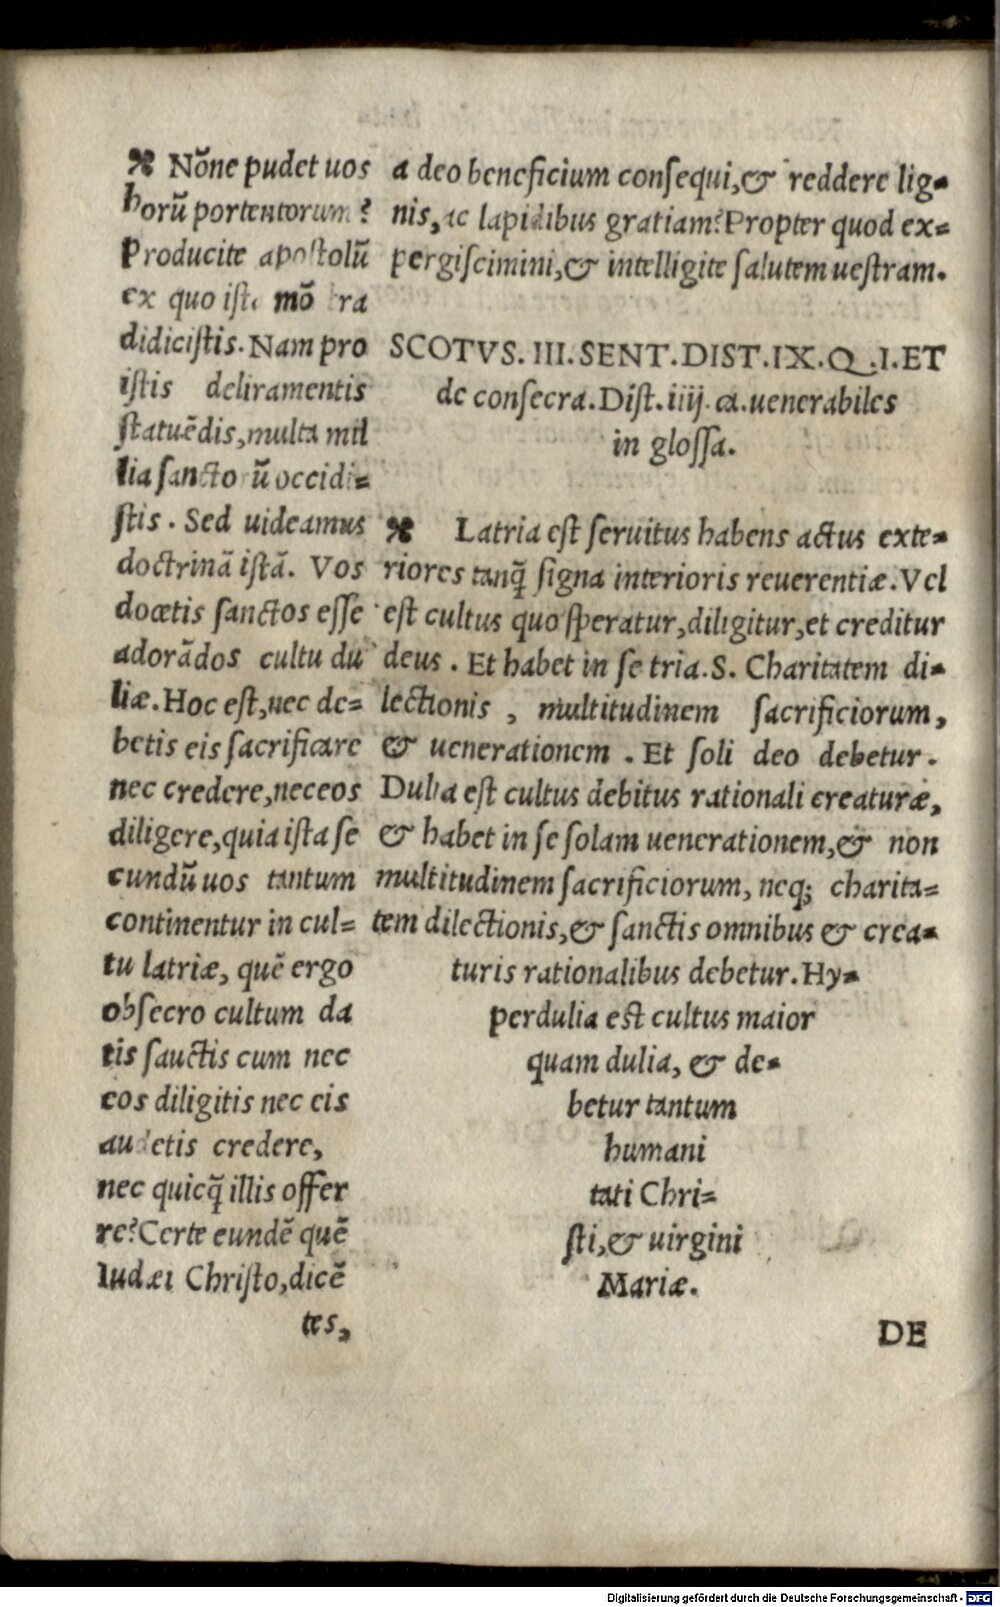 ✠ Nōne pudet uos
horū portentorum?
Producite apostolū
ex quo ista mōstra
didicistis. Nam pro
istis deliramentis
statuēdis, multa mil
lia sanctorū occidi=
stis. Sed uideamus
doctrinā istā. Vos
docetis sanctos esse
adorādos cultu du
liæ. Hoc est, nec de=
betis eis sacrificare
nec credere, nec eos
diligere, quia ista se
cundū uos tantum
continentur in cul=
tu latriæ, quē ergo
obsecro cultum da
tis sauctis cum nec
eos diligitis nec eis
audetis credere,
nec quicq̄ illis offer
re? Certe eundē quē
Iudæi Christo, dicē
tes,
a deo beneficium consequi, & reddere lig=
nis, ac lapidibus gratiam? Propter quod ex=
pergiscimini, & intelligite salutem uestram.
SCOTVS. III. SENT. DIST. IX. Q. I. ET
de consecra. Dist. iiij. ca. uenerabiles
in glossa.
✠ Latria est seruitus habens actus exte=
riores tanq̄ signa interioris reuerentiæ. Vel
est cultus quo speratur, diligitur, et creditur
deus. Et habet in se tria. S. Charitatem di=
lectionis, multitudinem sacrificiorum,
& uenerationem. Et soli deo debetur.
Dulia est cultus debitus rationali creaturæ,
& habet in se solam uenerationem, & non
multitudinem sacrificiorum, neq; charita=
tem dilectionis, & sanctis omnibus & crea=
turis rationalibus debetur. Hy=
perdulia est cultus maior
quam dulia, & de=
betur tantum
humani
tati Chri=
sti, & uirgini
Mariæ.
DE
Digitalisierung gefördert durch die Deutsche Forschungsgemeinschaft - DFG